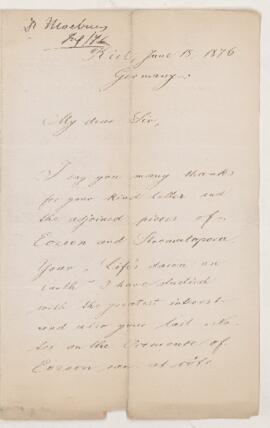 Dr Moebius
July 1876
Kiel, June 15, 1876
Germany.
My dear Sir,
I say you many thanks
for your kind letter and
the adjoined pieces of
Eozoon and Stromatopora
Your "Life's dawn on
earth" I have studied
with the greatest interest
and also your last
on the Occurrence of
Eozoon